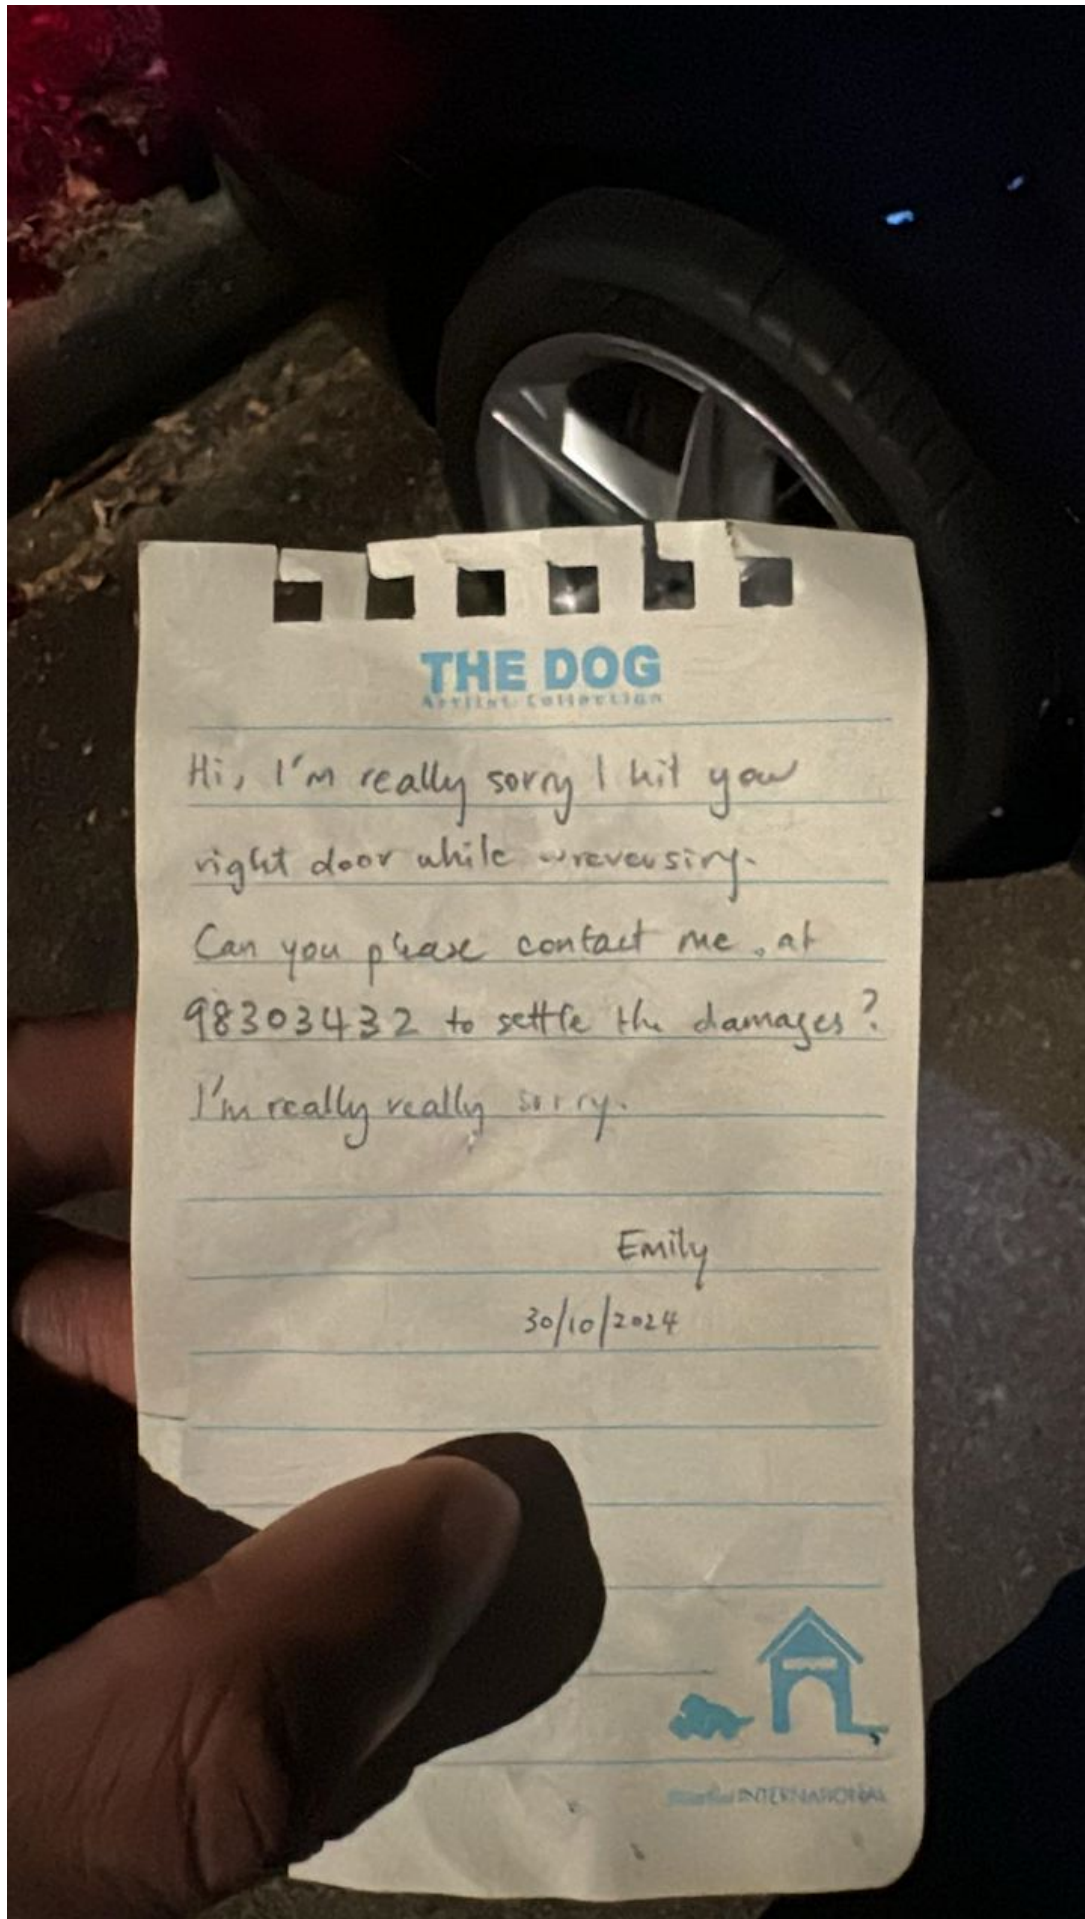 THE DOG
Artlist Collection
Hi, I'm really sorry I hit your
right door while reversing.
Can you please contact me at
98303432 to settle the damages?
I'm really really sorry.
Emily
30/10/2024
INTERNATIONAL